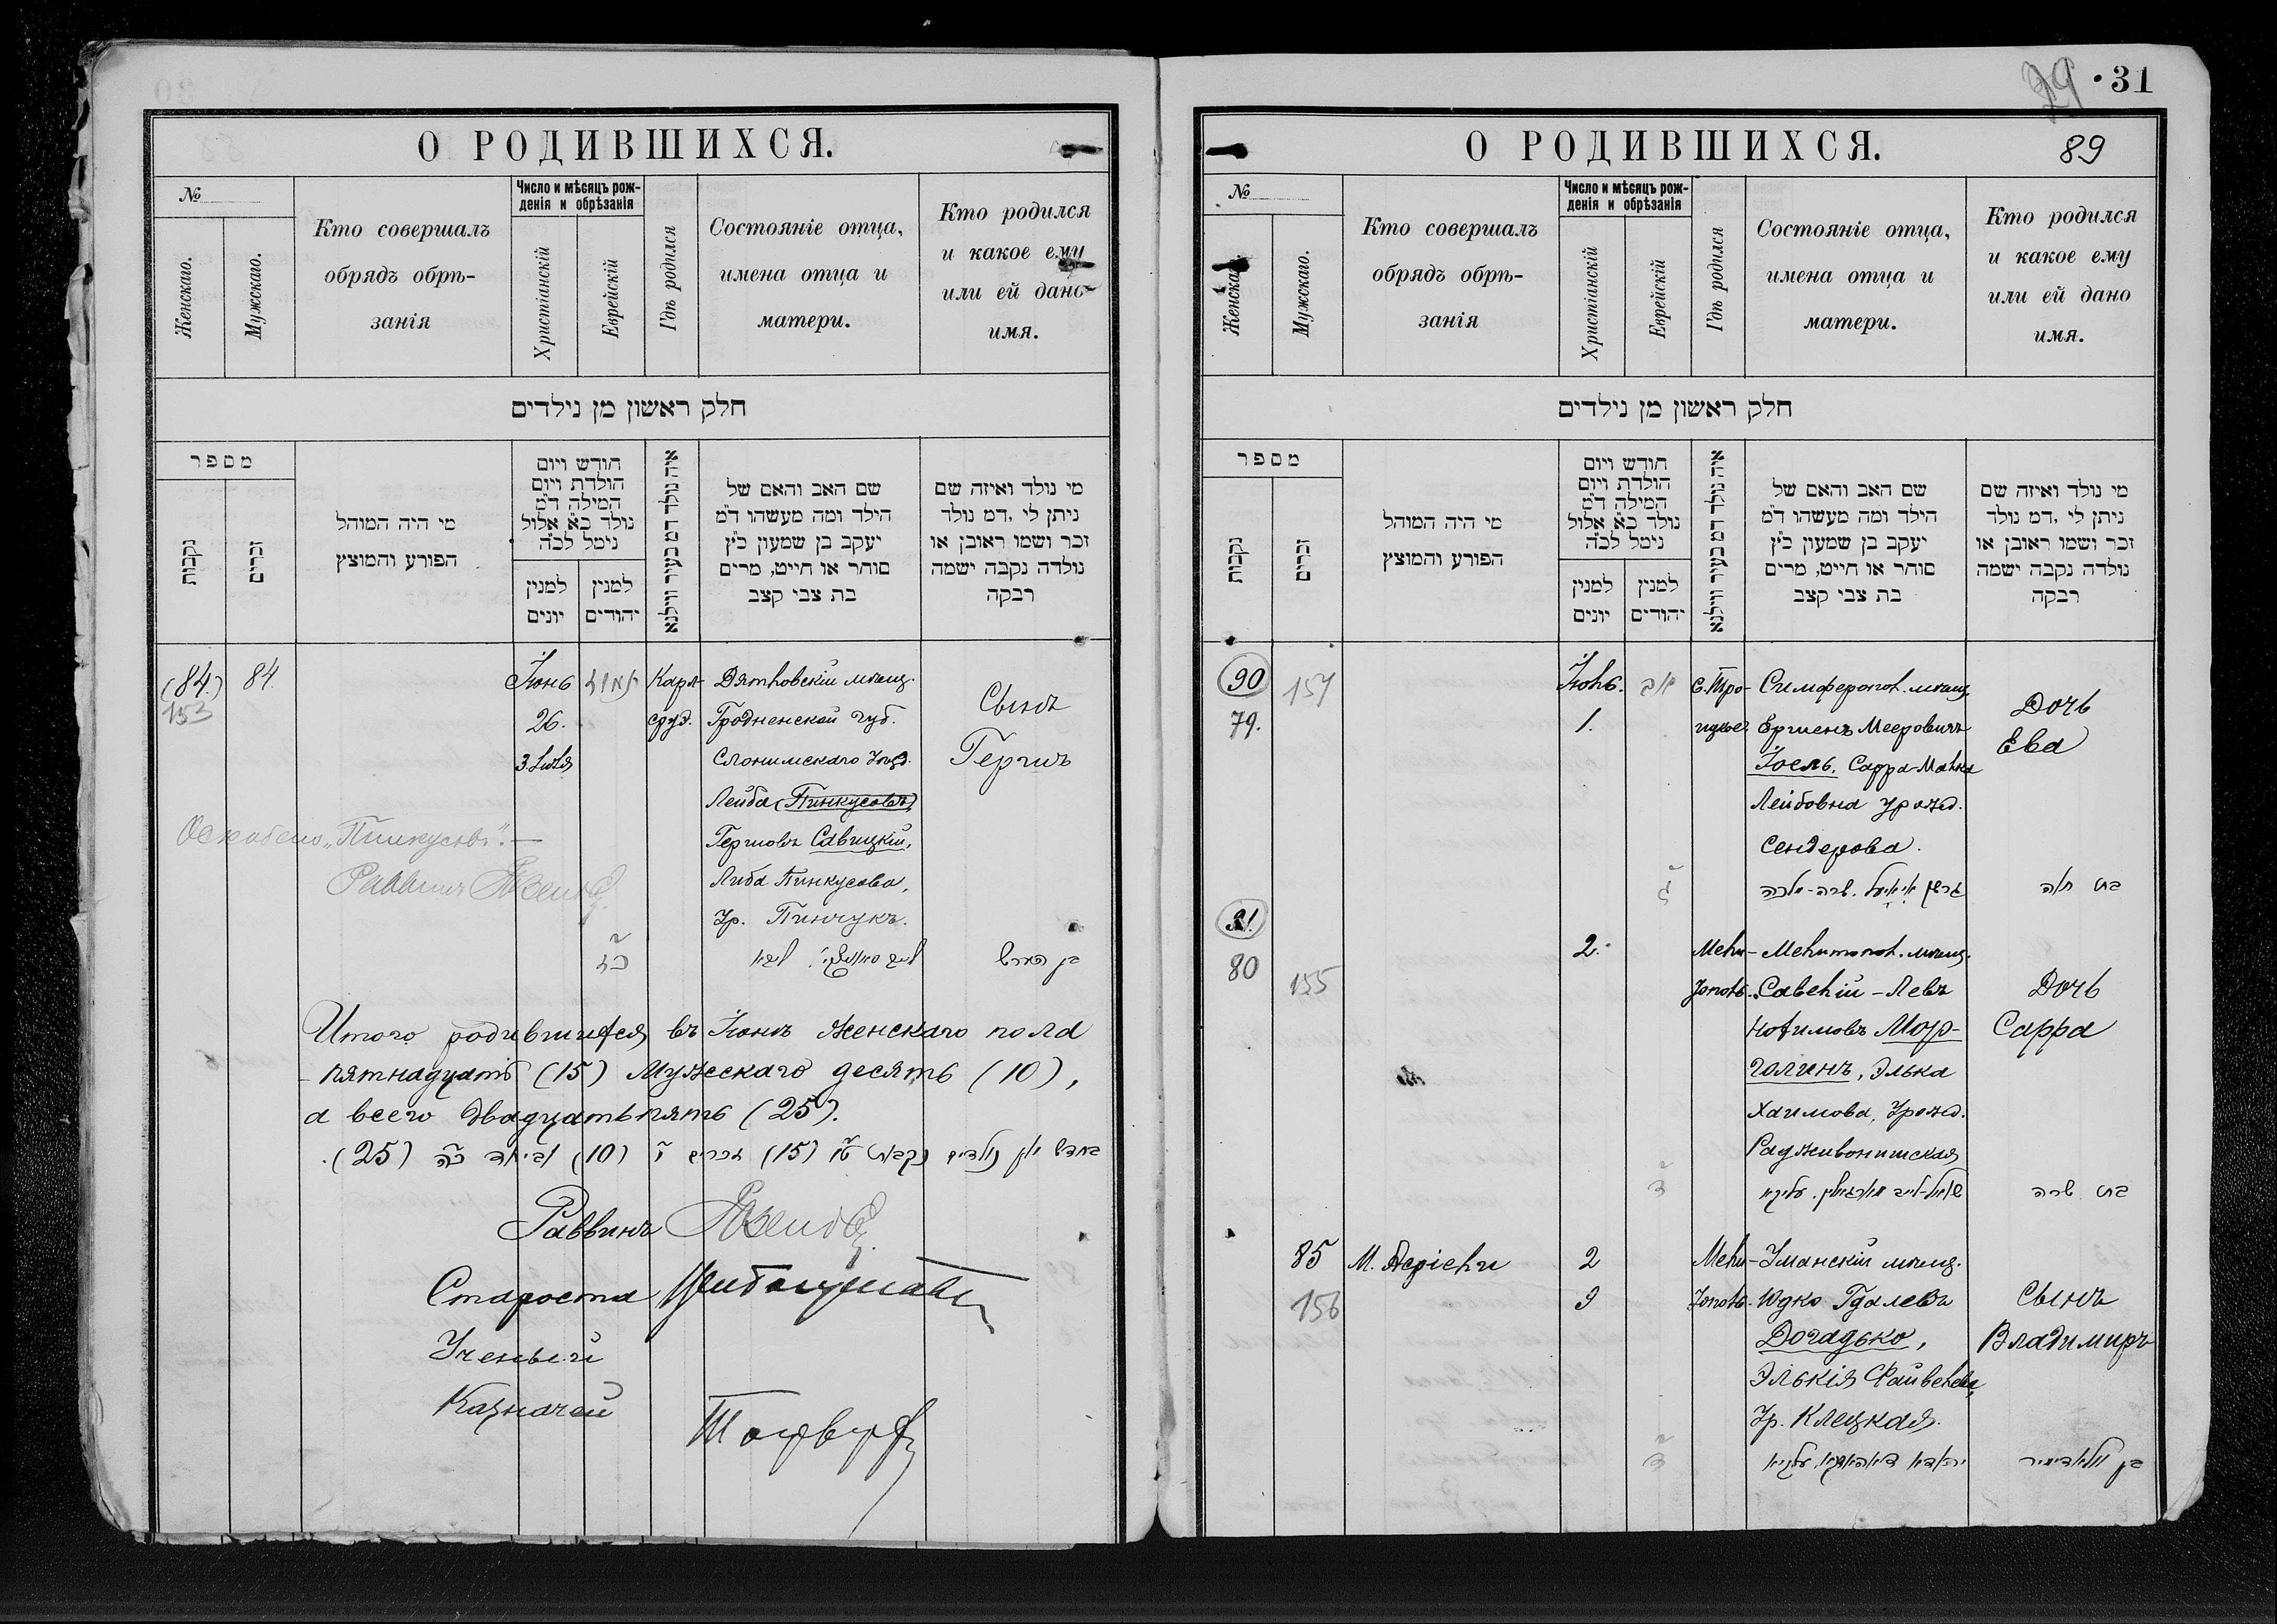 О РОДИВШИХСЯ.
№
Женскаго.
Мужскаго.
Кто совершалъ
обрядъ обрѣ-
занія
Число и мѣсяцъ рож-
денія и обрѣзанія
Христіанскій
Еврейскій
Годъ родился
Состояніе отца,
имена отца и
матери.
Кто родился
и какое ему
или ей дано
имя.
חלק ראשון מן נילדים
מספר
נקבות
זכרים
מי היה המוהל
הפורע והמוצץ
חודש ויום
הולדת ויום
המילה ד"מ
נולד כ"א אלול
נימל לכ"ה
למנין
יונים
למנין
יהודים
שם האב והאם של
הילד ומה מעשהו ד"מ
יעקב בן שמעון כ"ץ
סוחר או חייט, מרים
בת צבי קצב
מי נולד ואיזה שם
ניתן לי, דמ נולד
זכר ושמו ראובן או
נולדה נקבה ישמה
רבקה
(84.) 84
153
Іюнь
26.
3 Іюля
תמוז
כ"ז
Карл-
сруэ.
Дятловскій мѣщ.
Гродненской губ.
Слонимскаго уѣзд.
Лейба (Пинкусовъ)
Гершовъ Савицкій,
Либа Пинкусова,
Ур. Пинчукъ.
Сынъ
Гершъ
בן הערש
"Пинкусовъ". —
Раввинъ
Итого родившихся въ Іюнѣ женскаго пола
- пятнадцать (15) мужескаго десять (10),
а всего двадцать пять (25).
בחדש יון נולדים נקבות ט"ו (15) זכרים י' (10) וביחד כ"ה (25).
Раввинъ
Староста
Ученый
Казначей
29 • 31
О РОДИВШИХСЯ.
89
№
Женскаго.
Мужскаго.
Кто совершалъ
обрядъ обрѣ-
занія
Число и мѣсяцъ рож-
денія и обрѣзанія
Христіанскій
Еврейскій
Годъ родился
Состояніе отца,
имена отца и
матери.
Кто родился
и какое ему
или ей дано
имя.
חלק ראשון מן נילדים
מספר
נקבות
זכרים
מי היה המוהל
הפורע והמוצץ
חודש ויום
הולדת ויום
המילה ד"מ
נולד כ"א אלול
נימל לכ"ה
למנין
יונים
למנין
יהודים
שם האב והאם של
הילד ומה מעשהו ד"מ
יעקב בן שמעון כ"ץ
סוחר או חייט, מרים
בת צבי קצב
מי נולד ואיזה שם
ניתן לי, דמ נולד
זכר ושמו ראובן או
נולדה נקבה ישמה
רבקה
90
79.
154
Іюль.
1.
אב
ג'
с. Тро-
ицкое.
Симфероpol. мѣщ.
Ершенъ Мееровичъ
Іоель, Сарра-Малка
Лейбовна урожд.
Сендерова.
Дочь
Ева
בת חוה
91
80
155
2.
ד'
Мели-
тополь.
Мелитопол. мѣщ.
Савелій-Левъ
Мор-
голинъ, Элька
Хаимова, урожд.
Дочь
Сарра
בת שרה
85
156
М.
2
9
ד'
Мели-
тополь.
Уманскій мѣщ.
Юдко Гдалевъ
Догадько,
Элькія Файвелева,
Ур. Клецкая.
Сынъ
Владимиръ
בן וולאדימיר